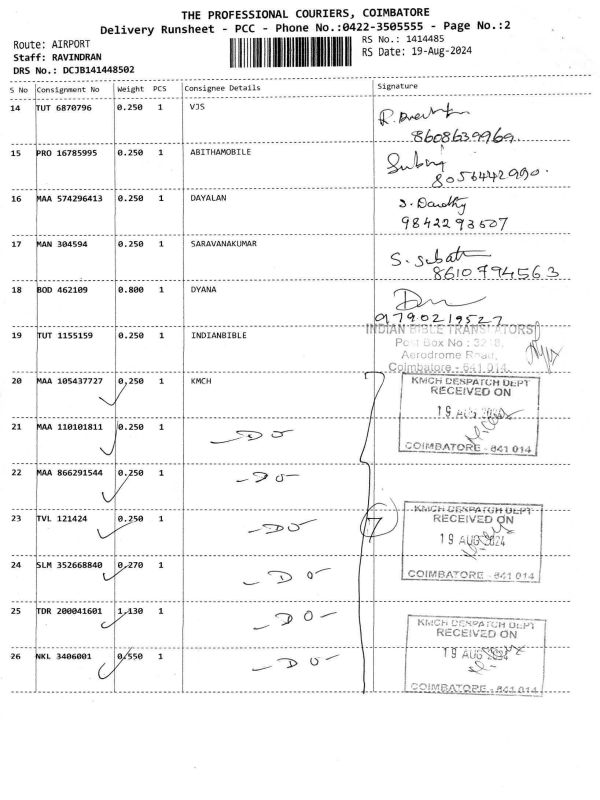 THE PROFESSIONAL COURIERS, COIMBATORE
Delivery Runsheet - PCC - Phone No.:0422-3505555 - Page No.:2
Route: AIRPORT
Staff: RAVINDRAN
DRS No.: DCJB141448502
RS No.: 1414485
RS Date: 19-Aug-2024
S No Consignment No Weight PCS Consignee Details Signature
14 TUT 6870796 0.250 1 VJS
8608639969
15 PRO 16785995 0.250 1 ABITHAMOBILE
8056442990.
16 MAA 574296413 0.250 1 DAYALAN
9842293507
17 MAN 304594 0.250 1 SARAVANAKUMAR
8610794563
18 BOD 462109 0.800 1 DYANA
9790219527
19 TUT 1155159 0.250 1 INDIANBIBLE
INDIAN BIBLE TRANSLATORS
Post Box No : 3218,
Aerodrome Road,
Coimbatore - 641 014.
20 MAA 105437727 0.250 1 KMCH
KMCH DESPATCH DEPT
RECEIVED ON
19 AUG 2024
COIMBATORE - 641 014
21 MAA 110101811 0.250 1 - DO -
22 MAA 866291544 0.250 1 - DO -
23 TVL 121424 0.250 1 - DO -
7
KMCH DESPATCH DEPT
RECEIVED ON
19 AUG 2024
COIMBATORE - 641 014
24 SLM 352668840 0.270 1 - DO -
25 TDR 200041601 1.130 1 - DO -
26 NKL 3406001 0.550 1 - DO -
KMCH DESPATCH DEPT
RECEIVED ON
19 AUG 2024
COIMBATORE - 641 014